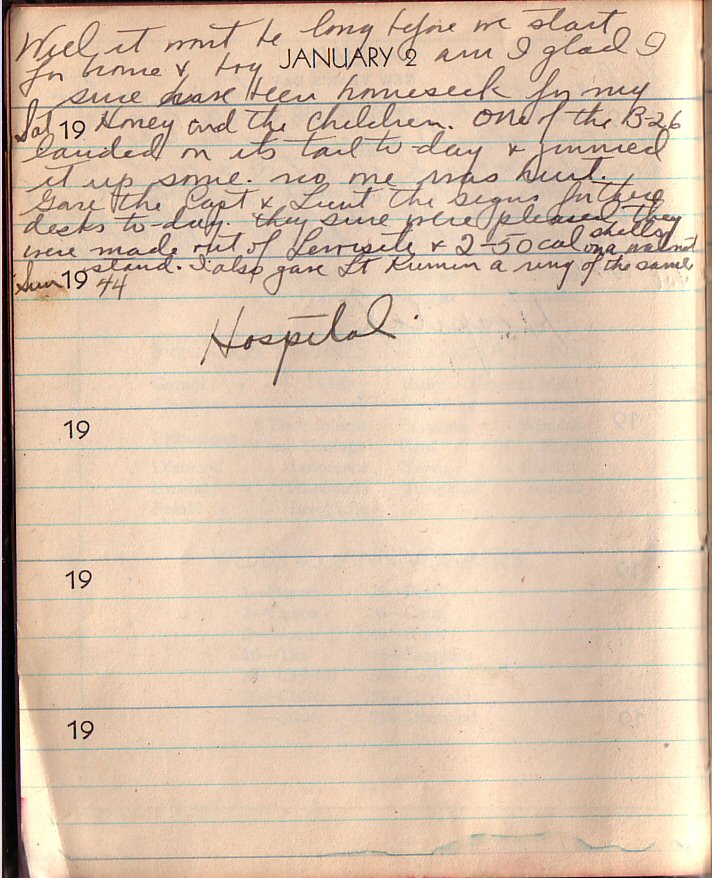 Well it wont be long before we start
for home & boy JANUARY 2 am I glad I
sure have been homeseek for my
Sat 19 Honey and the children. One of the B-26
landed on its tail to-day & jimmied
it up some. no one was hurt.
Gave the Capt & Lieut the signs for there
desks to-day. they sure were pleased they
were made out of & 2-50 cal shells on a walnut
stand. I also gave Lt a ring of the same
Sun 19 44
Hospital.
19
19
19